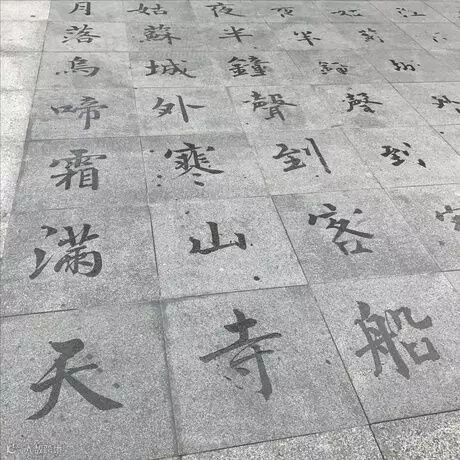 月落烏啼霜满天
姑蘇城外寒山寺
夜半鐘聲到客船
夜半鐘聲到
姑
江